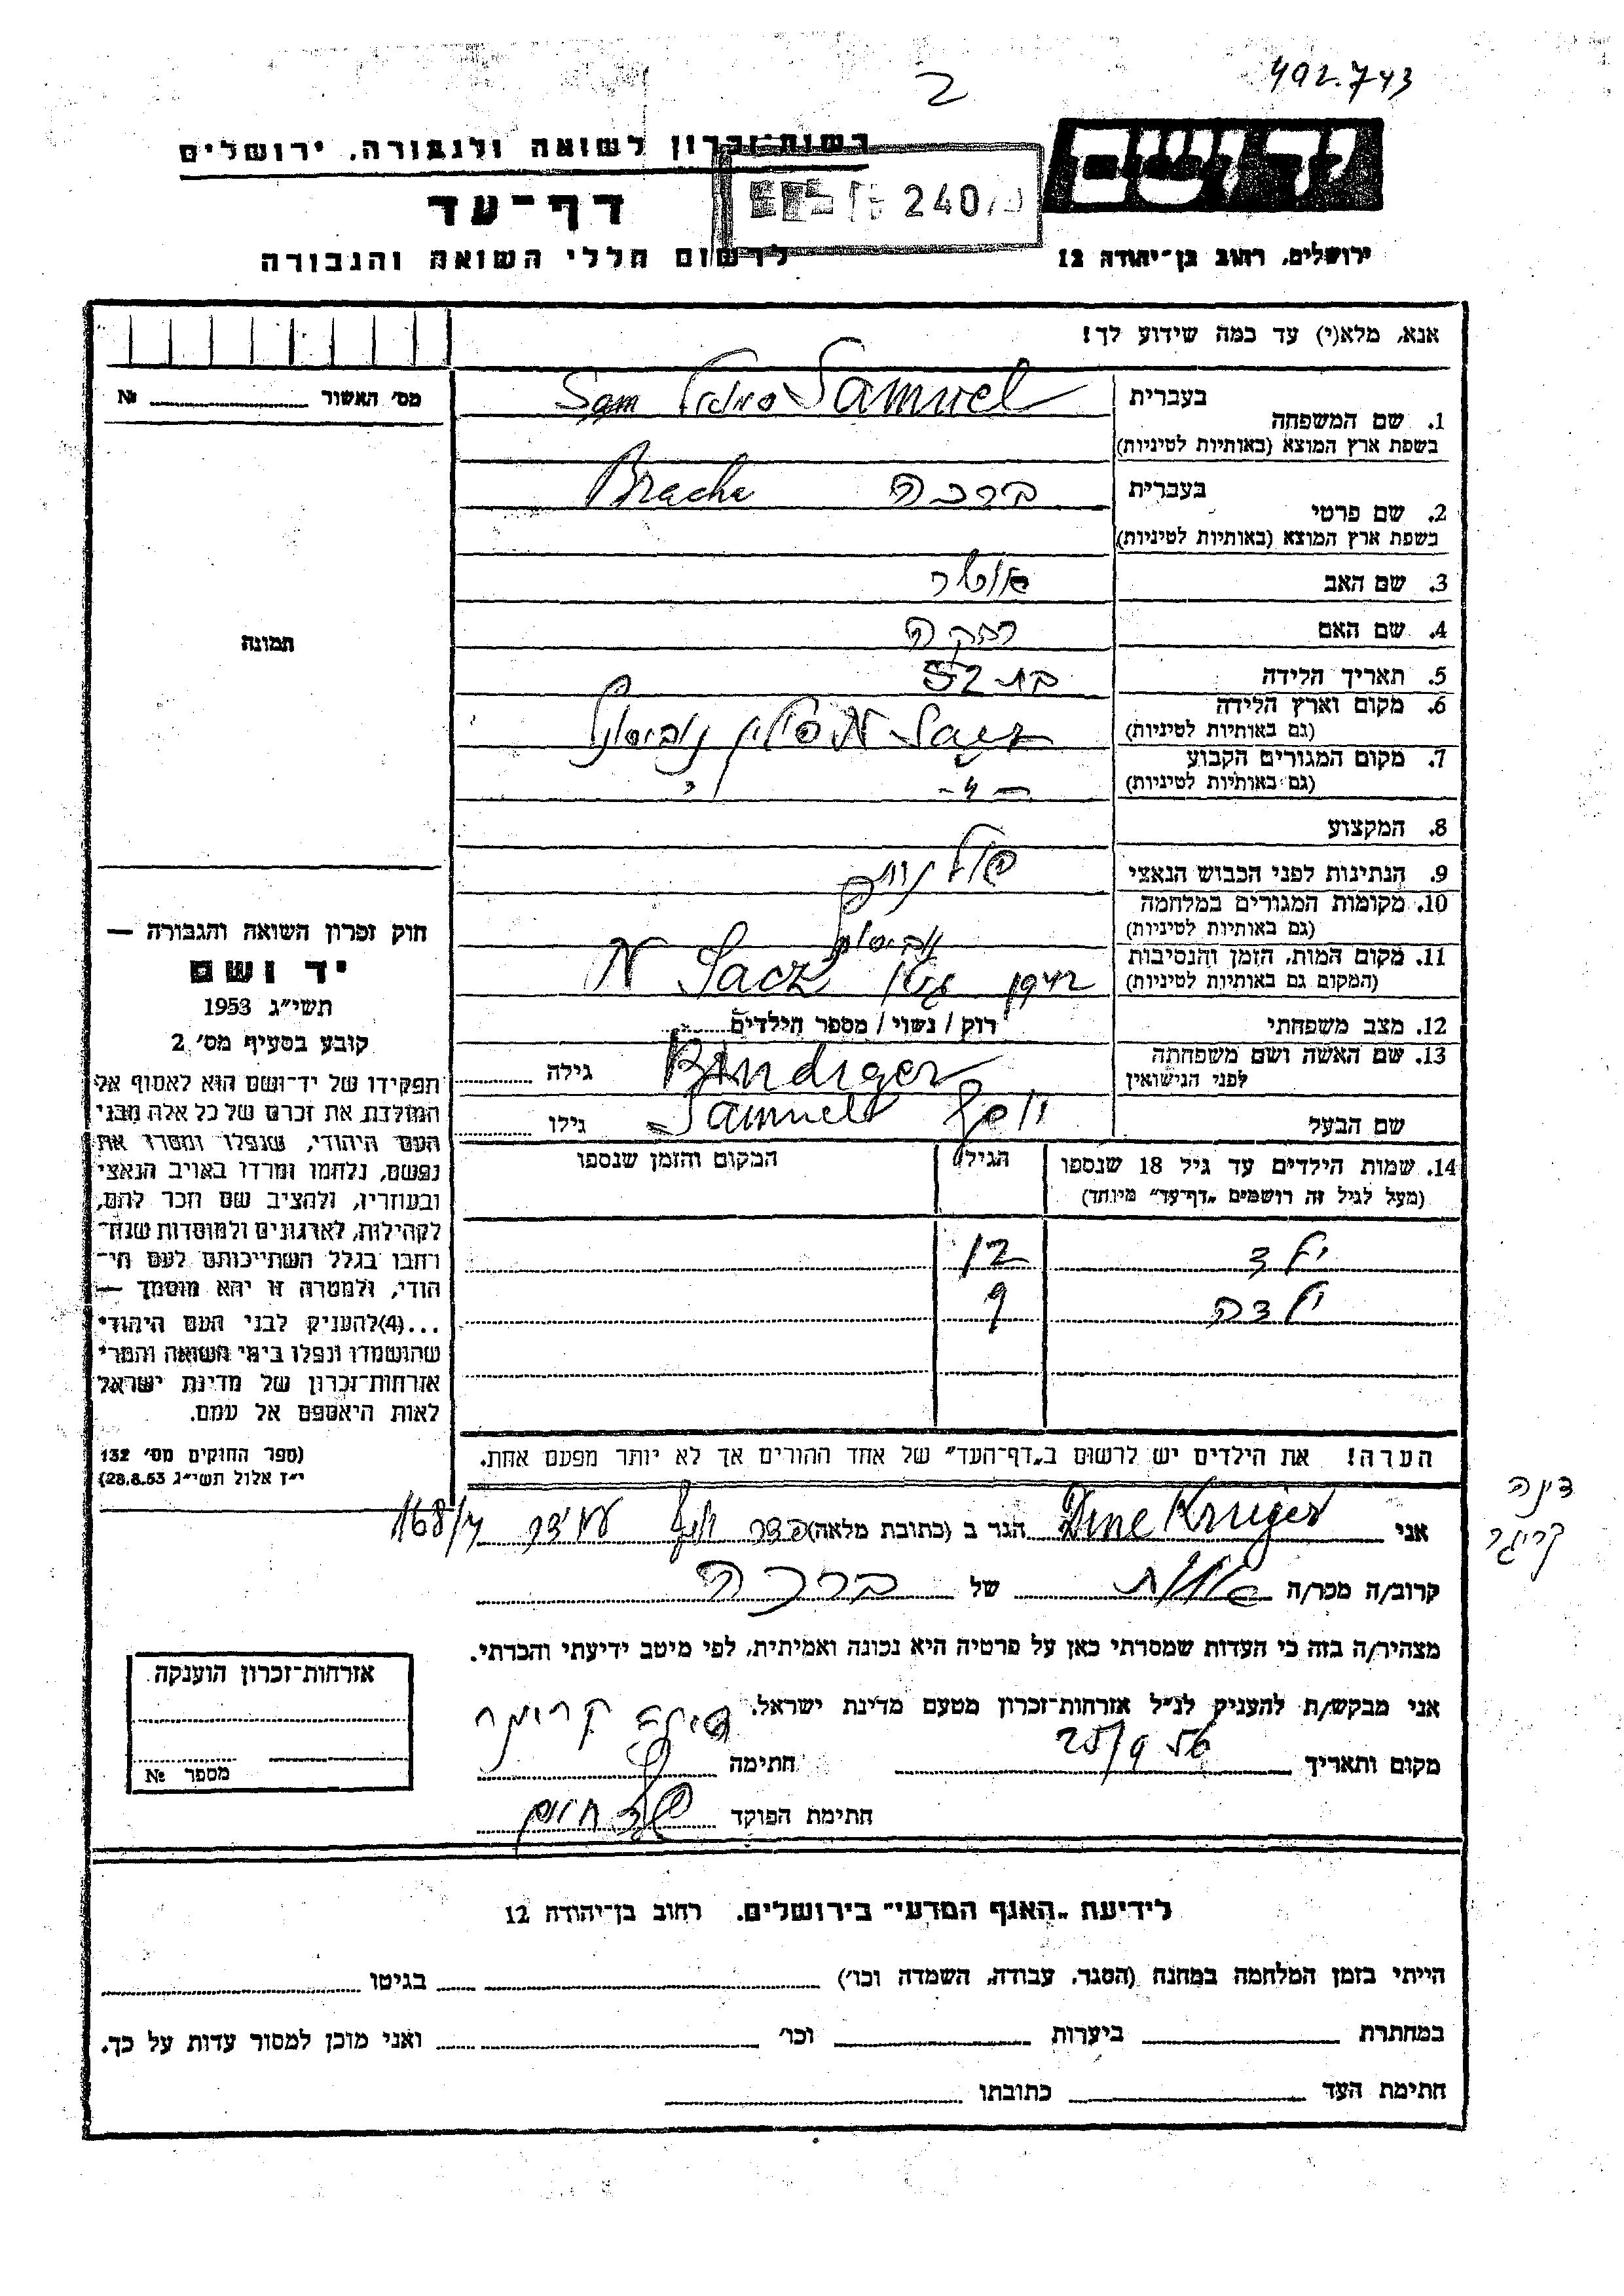 2
492.743
רשות־זכרון לשואה ולגבורה, ירושלים
יד ושם
דף־עד
240
לרשום חללי השואה והגבורה
ירושלים, רחוב בן־יהודה 12
אנא, מלא(י) עד כמה שידוע לך!
מס׳ האשור № 
1. שם המשפחה בעברית Samuel
בשפת ארץ המוצא (באותיות לטיניות)
2. שם פרטי בעברית ברכה Brache
בשפת ארץ המוצא (באותיות לטיניות)
3. שם האב
4. שם האם רבקה
5. תאריך הלידה בת 52
6. מקום וארץ הלידה
(גם באותיות לטיניות) Sacz
7. מקום המגורים הקבוע
(גם באותיות לטיניות) -"-
8. המקצוע
9. הנתינות לפני הכבוש הנאצי פולנית
10. מקומות המגורים במלחמה
(גם באותיות לטיניות)
11. מקום המות, הזמן והנסיבות
(המקום גם באותיות לטיניות) N Sacz
12. מצב משפחתי רוק / נשוי / מספר הילדים
13. שם האשה ושם משפחתה
לפני הנישואין Bindiger גילה
שם הבעל יוסף Samuel גילו
14. שמות הילדים עד גיל 18 שנספו הגיל המקום והזמן שנספו
(מעל לגיל זה רושמים „דף־עד” מיוחד)
ילד 12
ילדה 9
הערה! את הילדים יש לרשום ב„דף־העד” של אחד ההורים אך לא יותר מפעם אחת.
תמונה
חוק זכרון השואה והגבורה —
יד ושם
תשי״ג 1953
קובע בסעיף מס׳ 2
תפקידו של יד־ושם הוא לאסוף אל
המולדת את זכרם של כל אלה מבני
העם היהודי, שנפלו ומסרו את
נפשם, נלחמו ומרדו באויב הנאצי
ובעוזריו, ולהציב שם וזכר להם,
לקהילות, לארגונים ולמוסדות שנח־
רחבו בגלל השתייכותם לעם הי־
הודי, ולמטרה זו יהא מוסמך —
...(4) להעניק לבני העם היהודי
שהושמדו ונפלו בימי השואה והמרי
אזרחות־זכרון של מדינת ישראל
לאות היאספם אל עמם.
(ספר החוקים מס׳ 132
י״ז אלול תשי״ג 28.8.53)
דינה
קריגר
אני Dine Kruger הגר ב (כתובת מלאה) 168/4
קרוב/ה מכר/ה של ברכה
מצהיר/ה בזה כי העדות שמסרתי כאן על פרטיה היא נכונה ואמיתית, לפי מיטב ידיעתי והכרתי.
אני מבקש/ת להעניק לנ״ל אזרחות־זכרון מטעם מדינת ישראל.
מקום ותאריך 25/9 56 חתימה דינה קריגר
חתימת הפוקד
אזרחות־זכרון הוענקה
מספר №
לידיעת „האגף המדעי” בירושלים. רחוב בן־יהודה 12
הייתי בזמן המלחמה במחנה (הסגר, עבודה, השמדה וכו׳) בגיטו
במחתרת ביערות וכו׳ ואני מוכן למסור עדות על כך.
חתימת העד כתובתו